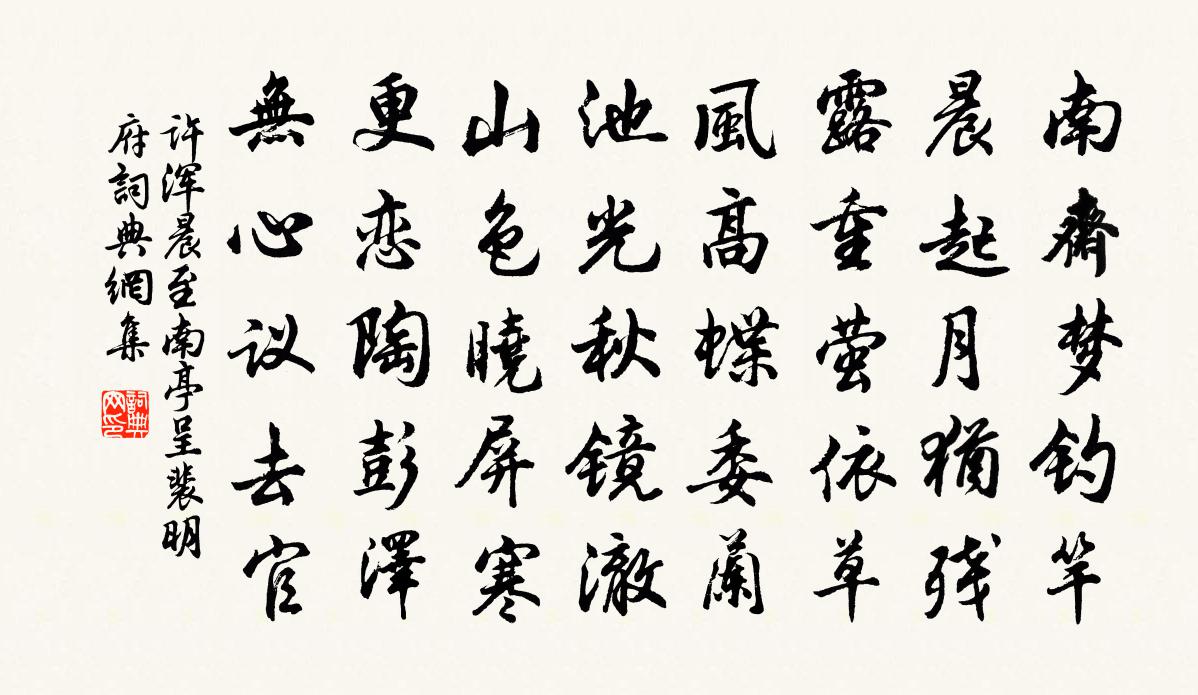 南齋梦钓竿
晨起月猶残
露重萤依草
風高蝶委蘭
池光秋镜澈
山色曉屏寒
更恋陶彭澤
無心议去官
许浑晨至南亭呈裴明
府詞典網集
詞典网印